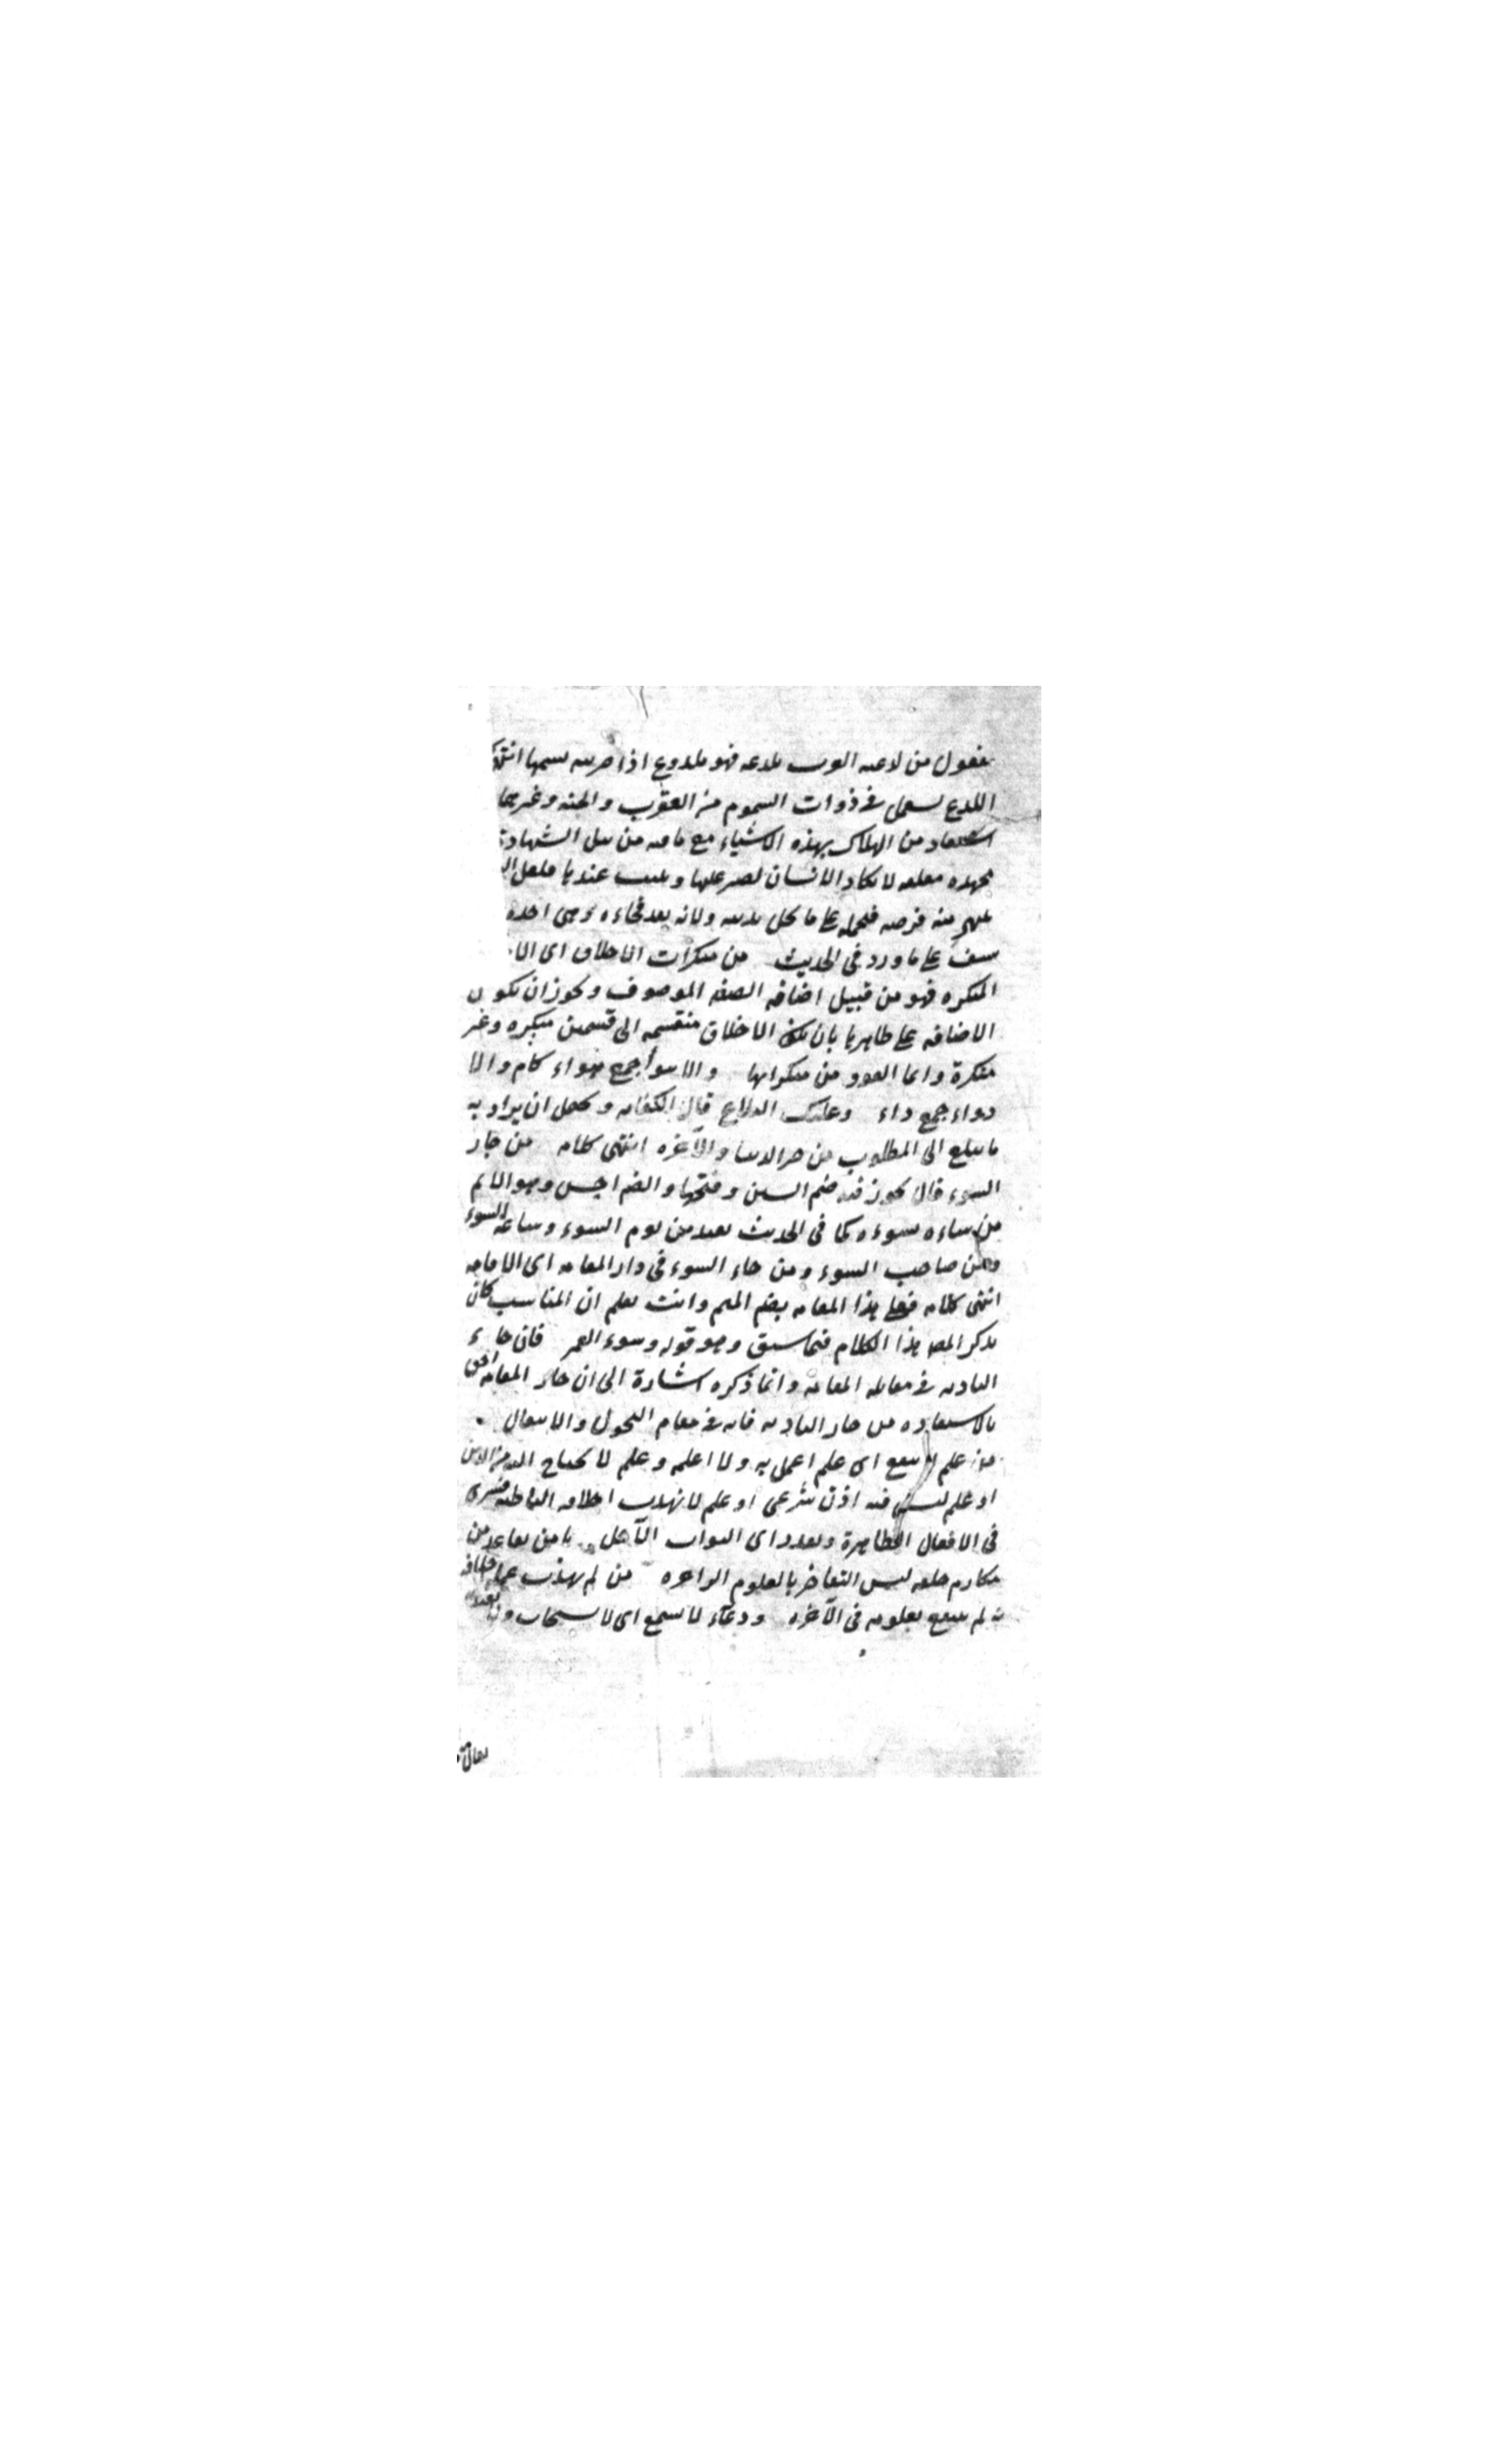 مفعول من لدغه العقرب يلدغه فهو ملدوغ اذا ضربته بسمها انتهى
اللدغ يستعمل في ذوات السموم من العقرب والحية وغيرهما
استعاذ من الهلاك بهذه الاشياء مع ما فيه من نيل الشهادة
مجهدة مقلقة لا يكاد الانسان يصبر عليها ويثبت عندها فلعل
منه فرصة فيحمله على ما يخل بدينه ولانه يعد فجاءة وهي اخذة
على ما ورد في الحديث من منكرات الاخلاق اي الا
المنكرة فهو من قبيل اضافة الصفة الموصوف ويجوز ان يكون
الاضافة على ظاهرها بان يكون الاخلاق منقسمة الى قسمين منكرة وغير
منكرة وانما العوذ من منكراتها والاهواء جمع هواء كام والا
دواء جمع داء وعليك البلاغ قال الكفاية ويحتمل ان يراد به
ما يبلغ الى المطلوب من خير الدنيا والآخرة انتهى كلامه من جار
السوء قال يجوز فيه ضم السين وفتحها والضم احسن وهو الاثم
من ساءه يسوءه كما في الحديث نعوذ من يوم السوء وساعة السوء
ومن صاحب السوء ومن جار السوء في دار المقامة اي الاقامة
انتهى كلامه فعلى هذا المقامة بضم الميم وانت تعلم ان المناسب كان
يذكر المص هذا الكلام فيما سبق وهو قوله وسوء العمر فان جار
البادية في مقابلة المقامة وانما ذكره اشارة الى ان جار المقامة احق
بالاستعاذة من جار البادية فانه في مقام التحول والانتقال
من علم لا ينفع اي علم اعمل به ولا اعلمه وعلم لا يحتاج اليه في الدين
او علم ليس فيه اذن شرعي او علم لا يهذب اخلاقه الباطنة فيسري
في الافعال الظاهرة ويعود اى الثواب الآجل يا من تقاعد من
مكارم خلقه ليس التفاخر بالعلوم الزاخرة من لم يهذب علمه اخلاقه
لم ينتفع بعلومه في الآخرة ودعاء لا يسمع اي لا يستجاب